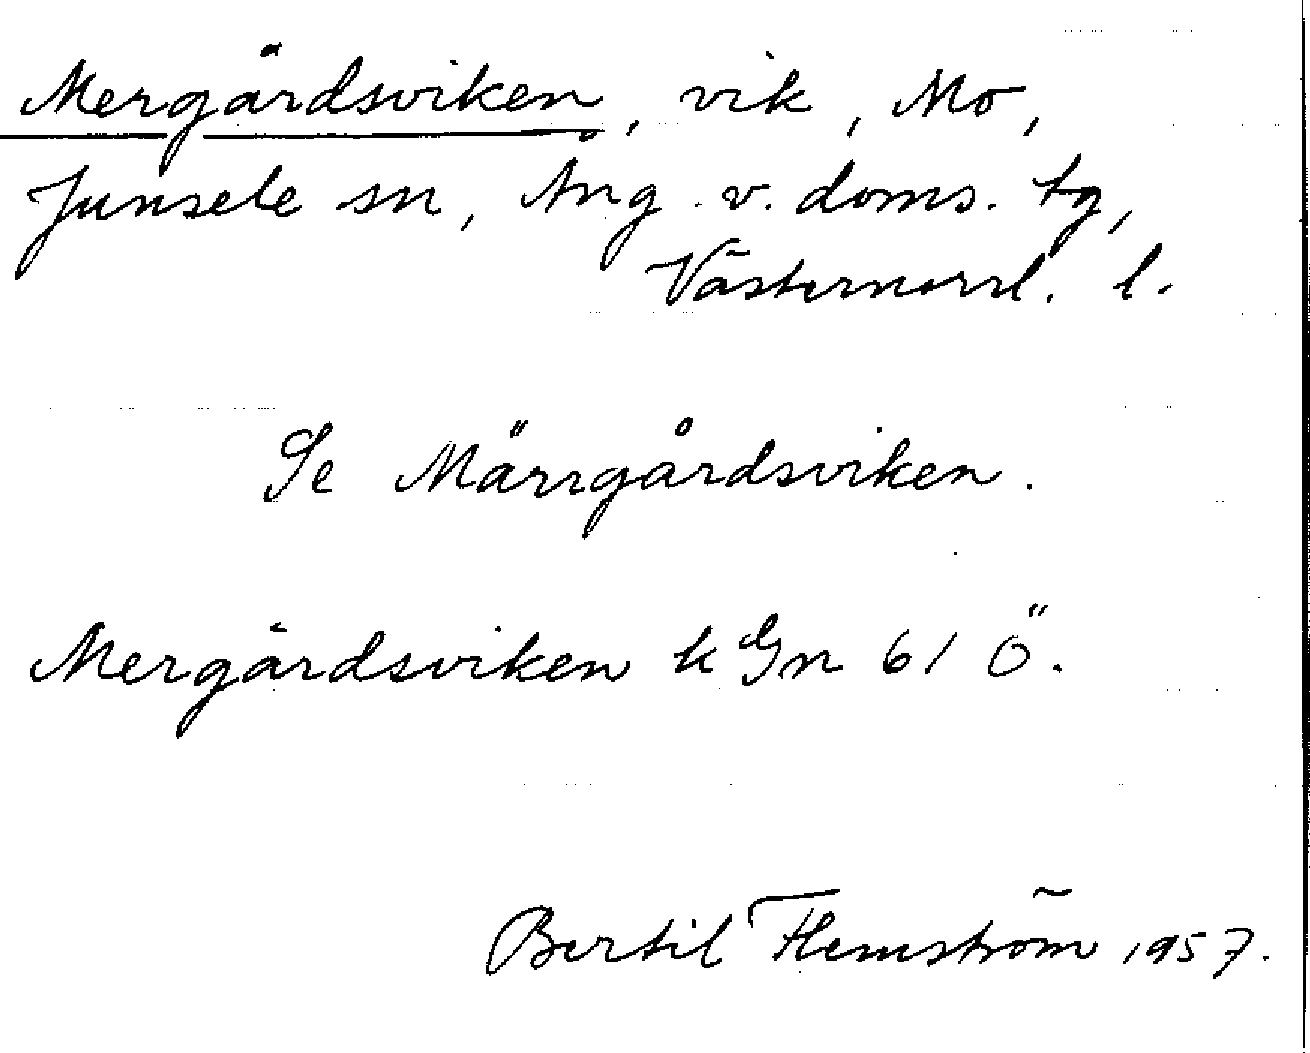 Mergårdsviken, vik, Mo,
Junsele sn, Ång. v. doms. tg,
Västernorrl. l.
Se Märrgårdsviken.
Mergårdsviken k Gn 61 Ö.
Bertil Flemström 1957.